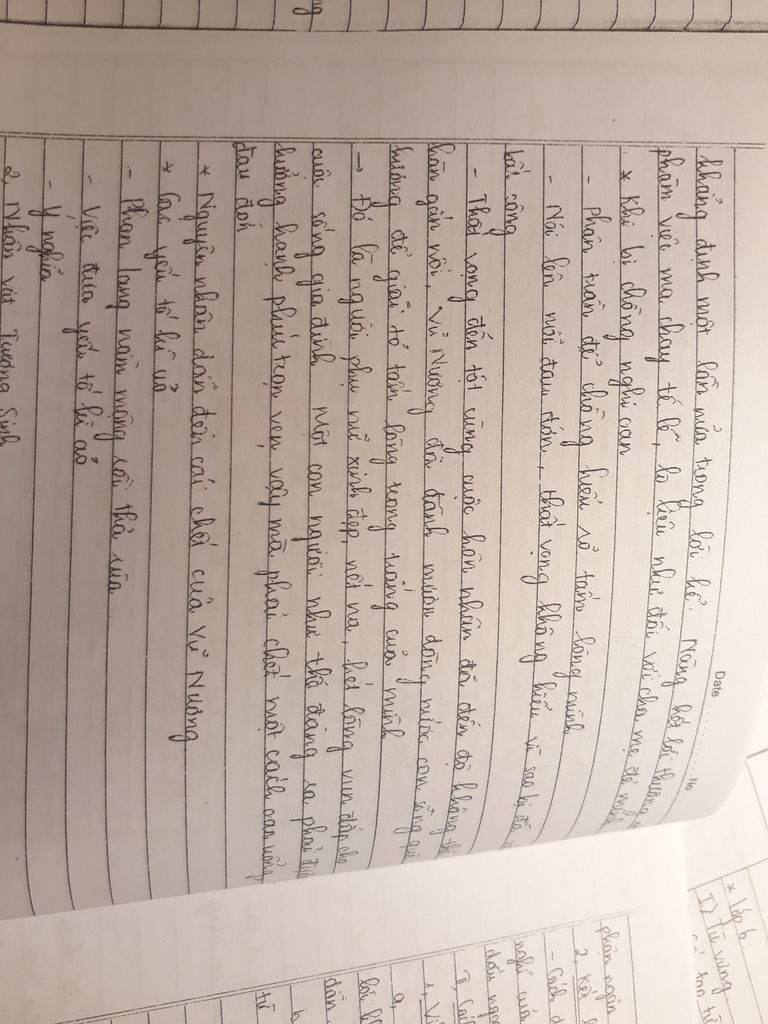 Date No
khẳng định một lần nữa trong lời kể. Nàng hết lời thương
phàm việc ma chay tế lễ, lo liệu như đối với cha mẹ đẻ mình
* Khi bị chồng nghi oan
- Phân trần để chồng hiểu rõ tấm lòng mình
- Nói lên nỗi đau đớn, thất vọng không hiểu vì sao bị đối
bất công
- Thất vọng đến tột cùng cuộc hôn nhân đã đến độ không thể
hàn gắn nổi, Vũ Nương đã đành mượn dòng nước con sông quê
hương để giãi tỏ tấm lòng trong trắng của mình
→ Đó là người phụ nữ xinh đẹp, nết na, hết lòng vun đắp cho
cuộc sống gia đình. Một con người như thế đáng ra phải
hưởng hạnh phúc trọn vẹn vậy mà phải chết một cách oan uổng,
đau đớn
* Nguyên nhân dẫn đến cái chết của Vũ Nương
* Các yếu tố kì ảo
- Phan lang nằm mộng rồi thả rùa
- Việc đưa yếu tố kì ảo
- Ý nghĩa
2, Nhân vật Trương Sinh
* Lớp 6:
I) Từ vựng
phận ngăn
2, Kết
- Cách
nghĩ của
dấu ngo
1, Vi
a,
lời
dẫn
b
từ